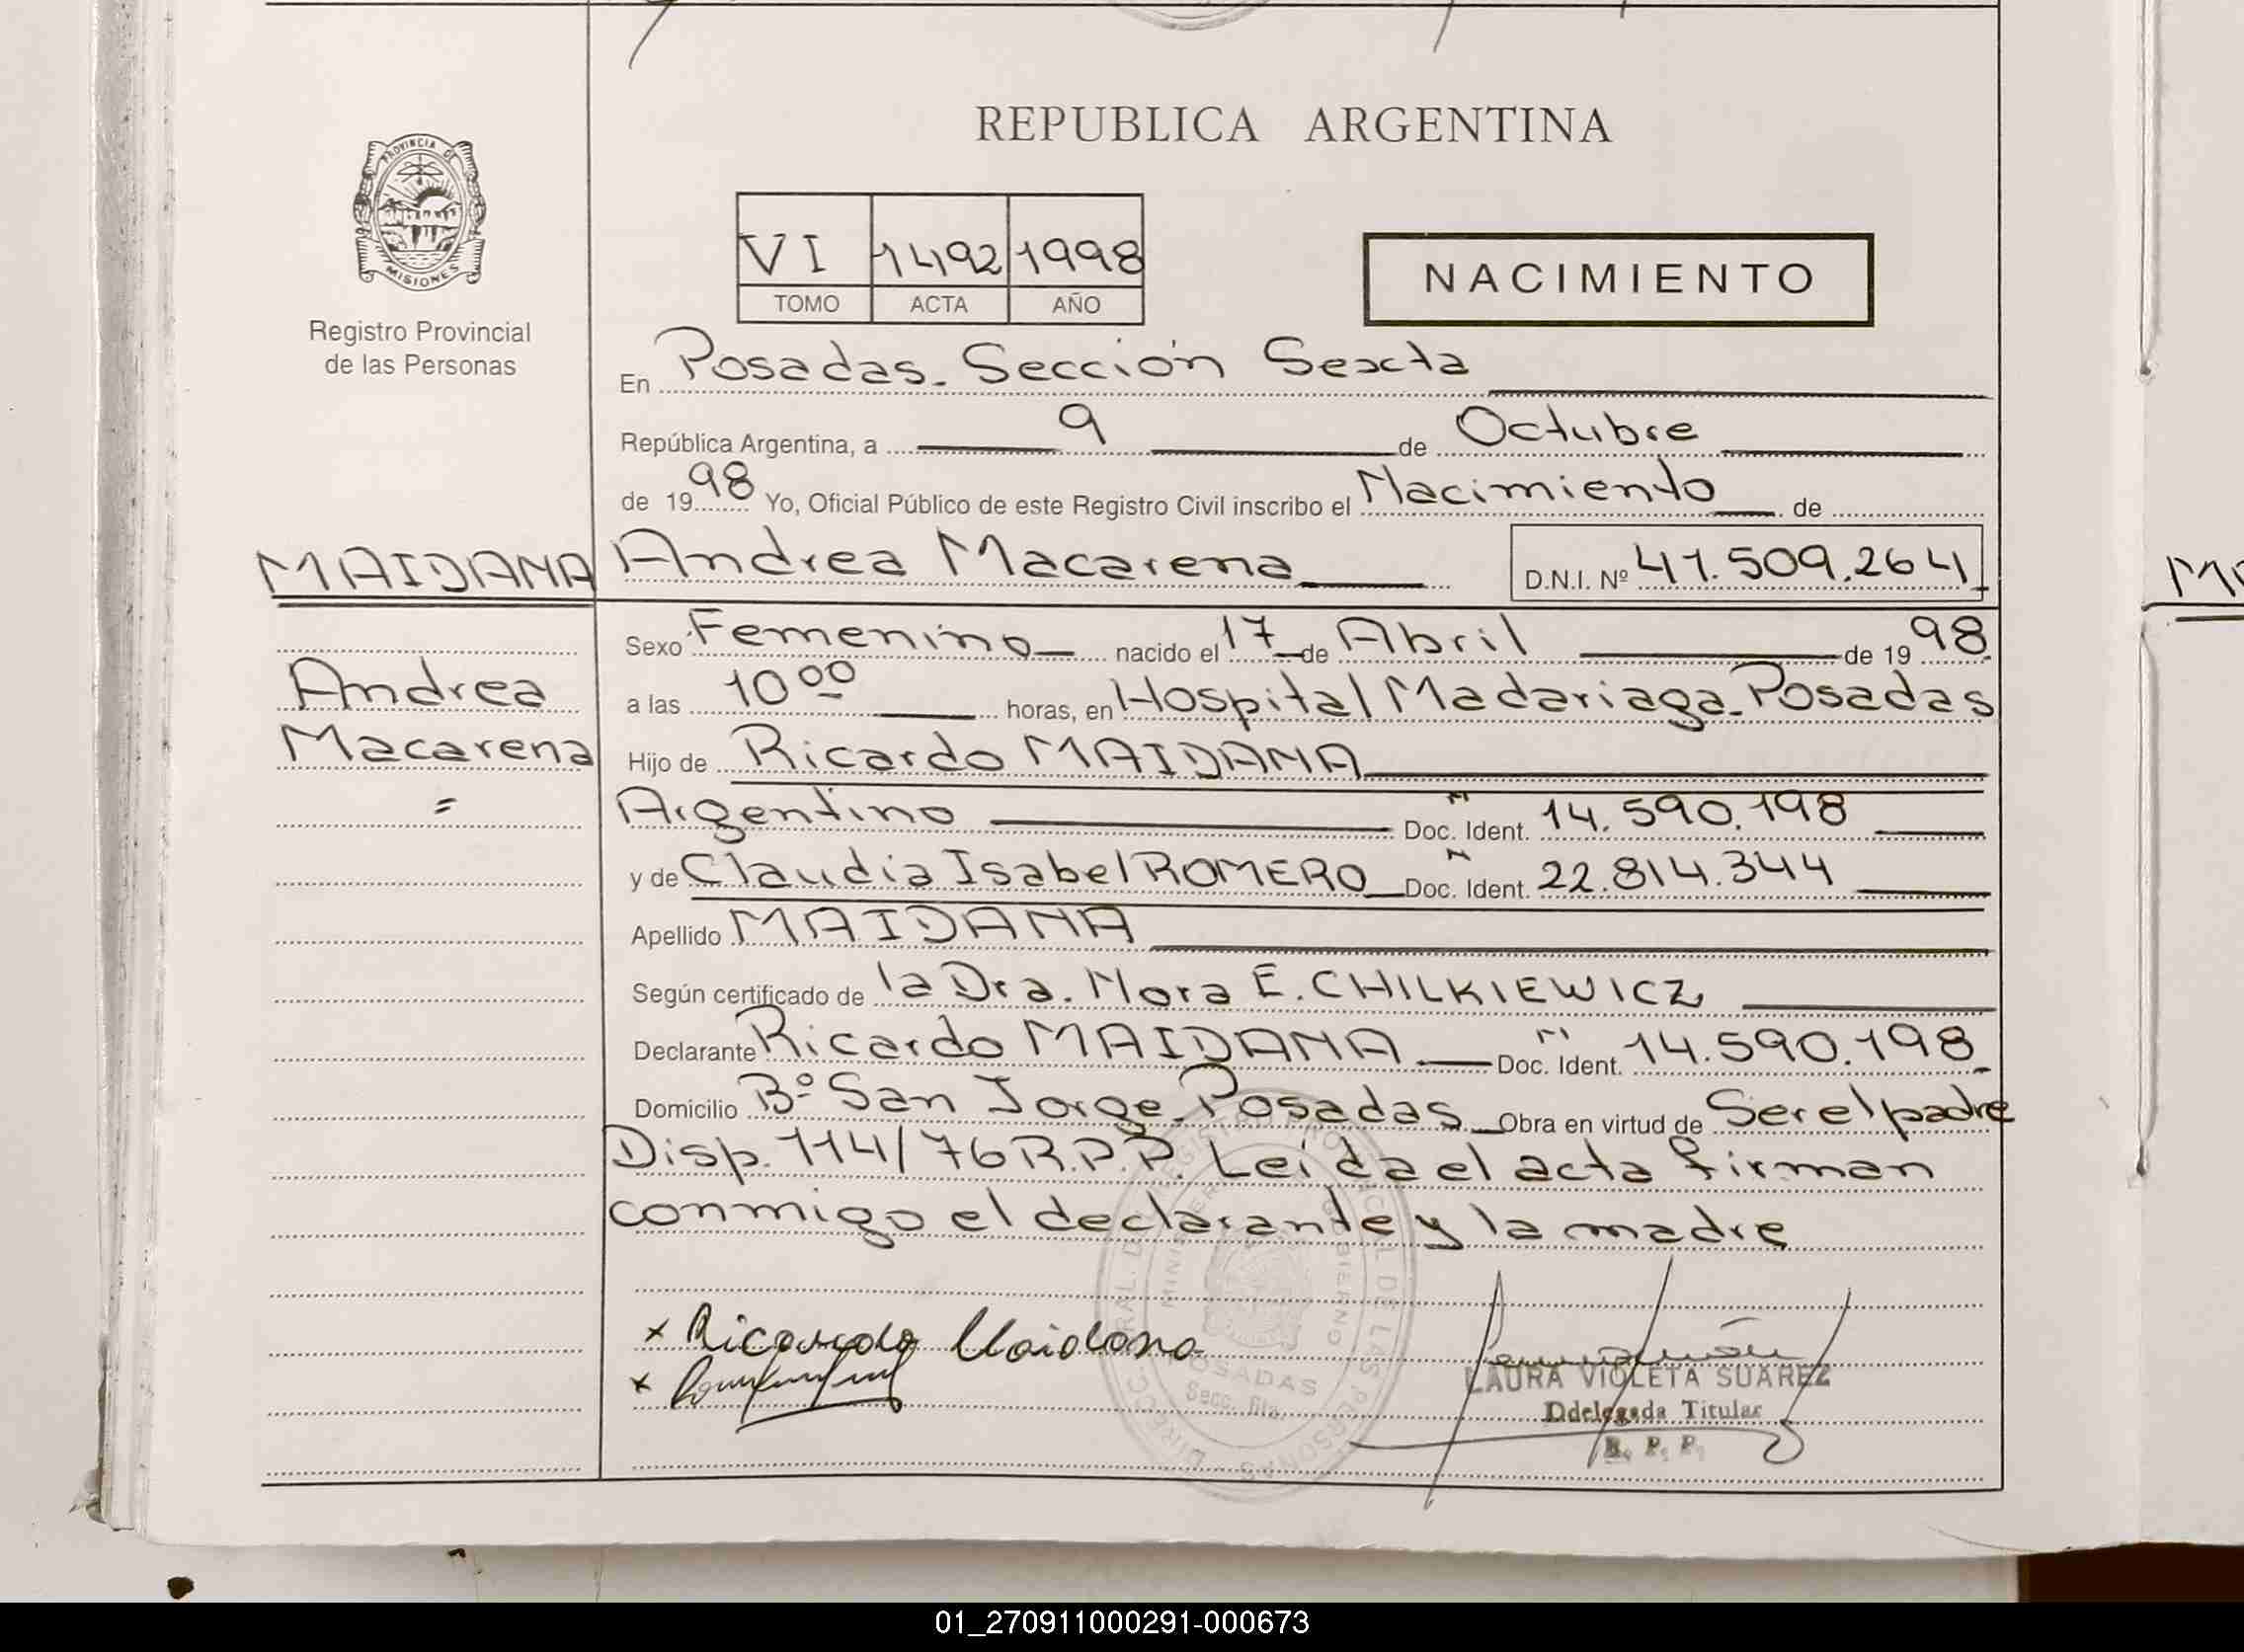 REPUBLICA ARGENTINA
PROVINCIA DE
MISIONES
Registro Provincial
de las Personas
VI 1492 1998
TOMO ACTA AÑO
NACIMIENTO
En Posadas. Sección Sexta
República Argentina, a 9 de Octubre
de 1998 Yo, Oficial Público de este Registro Civil inscribo el Nacimiento de
MAIDANA Andrea Macarena D.N.I. Nº 41.509.264
Sexo Femenino nacido el 17 de Abril de 1998
Andrea
a las 10 00 horas, en Hospital Madariaga. Posadas
Macarena
Hijo de Ricardo MAIDANA
Argentino Doc. Ident. 14.590.198
y de Claudia Isabel ROMERO Doc. Ident. 22.814.344
Apellido MAIDANA
Según certificado de la Dra. Nora E. CHILKIEWICZ
Declarante Ricardo MAIDANA Doc. Ident. 14.590.198
Domicilio Bº San Jorge. Posadas Obra en virtud de Ser el padre
Disp. 114/76 R.P.P. Leída el acta firman
conmigo el declarante y la madre
x Ricardo Maidana
x
DIRECC. GRAL. DEL REGISTRO PROVINCIAL DE LAS PERSONAS
MINISTERIO GOBIERNO
POSADAS
Secc. 6ta.
LAURA VIOLETA SUAREZ
Ddelegada Titular
R. P. P.
01_270911000291-000673